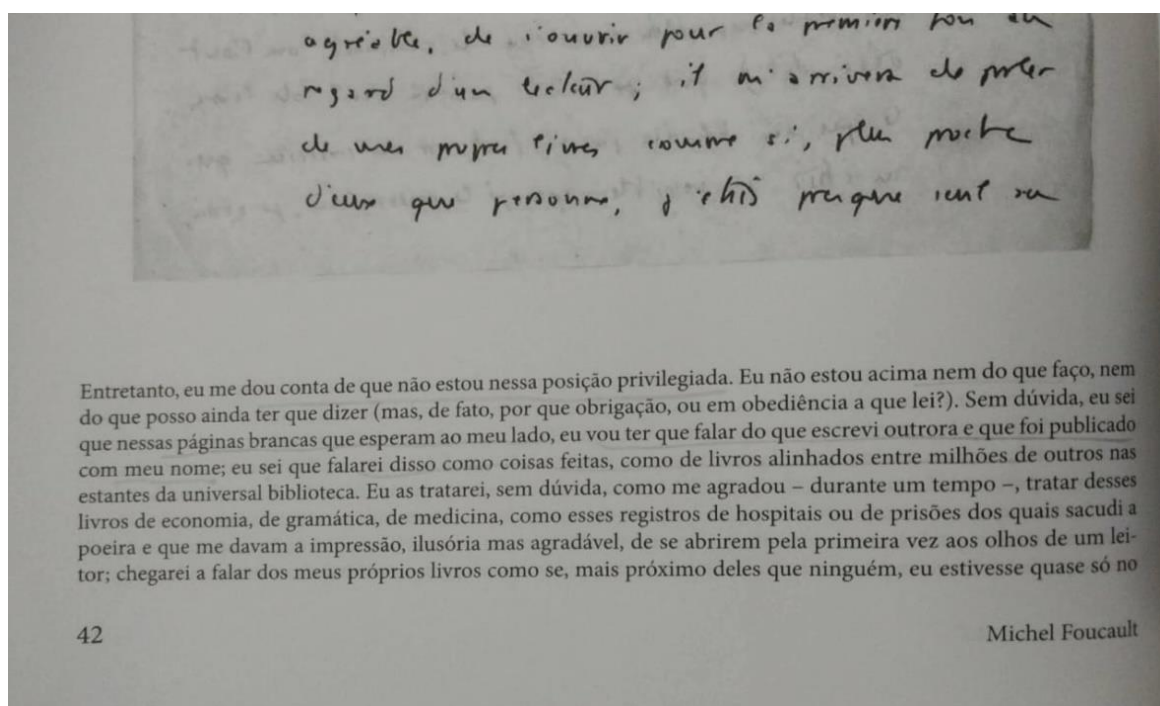 agréable, de s'ouvrir pour la première fois au
regard d'un lecteur ; il m'arrivera de parler
de mes propres livres comme si, plus proche
d'eux que personne, j'étais presque seul au
Entretanto, eu me dou conta de que não estou nessa posição privilegiada. Eu não estou acima nem do que faço, nem
do que posso ainda ter que dizer (mas, de fato, por que obrigação, ou em obediência a que lei?). Sem dúvida, eu sei
que nessas páginas brancas que esperam ao meu lado, eu vou ter que falar do que escrevi outrora e que foi publicado
com meu nome; eu sei que falarei disso como coisas feitas, como de livros alinhados entre milhões de outros nas
estantes da universal biblioteca. Eu as tratarei, sem dúvida, como me agradou – durante um tempo –, tratar desses
livros de economia, de gramática, de medicina, como esses registros de hospitais ou de prisões dos quais sacudi a
poeira e que me davam a impressão, ilusória mas agradável, de se abrirem pela primeira vez aos olhos de um lei-
tor; chegarei a falar dos meus próprios livros como se, mais próximo deles que ninguém, eu estivesse quase só no
42
Michel Foucault